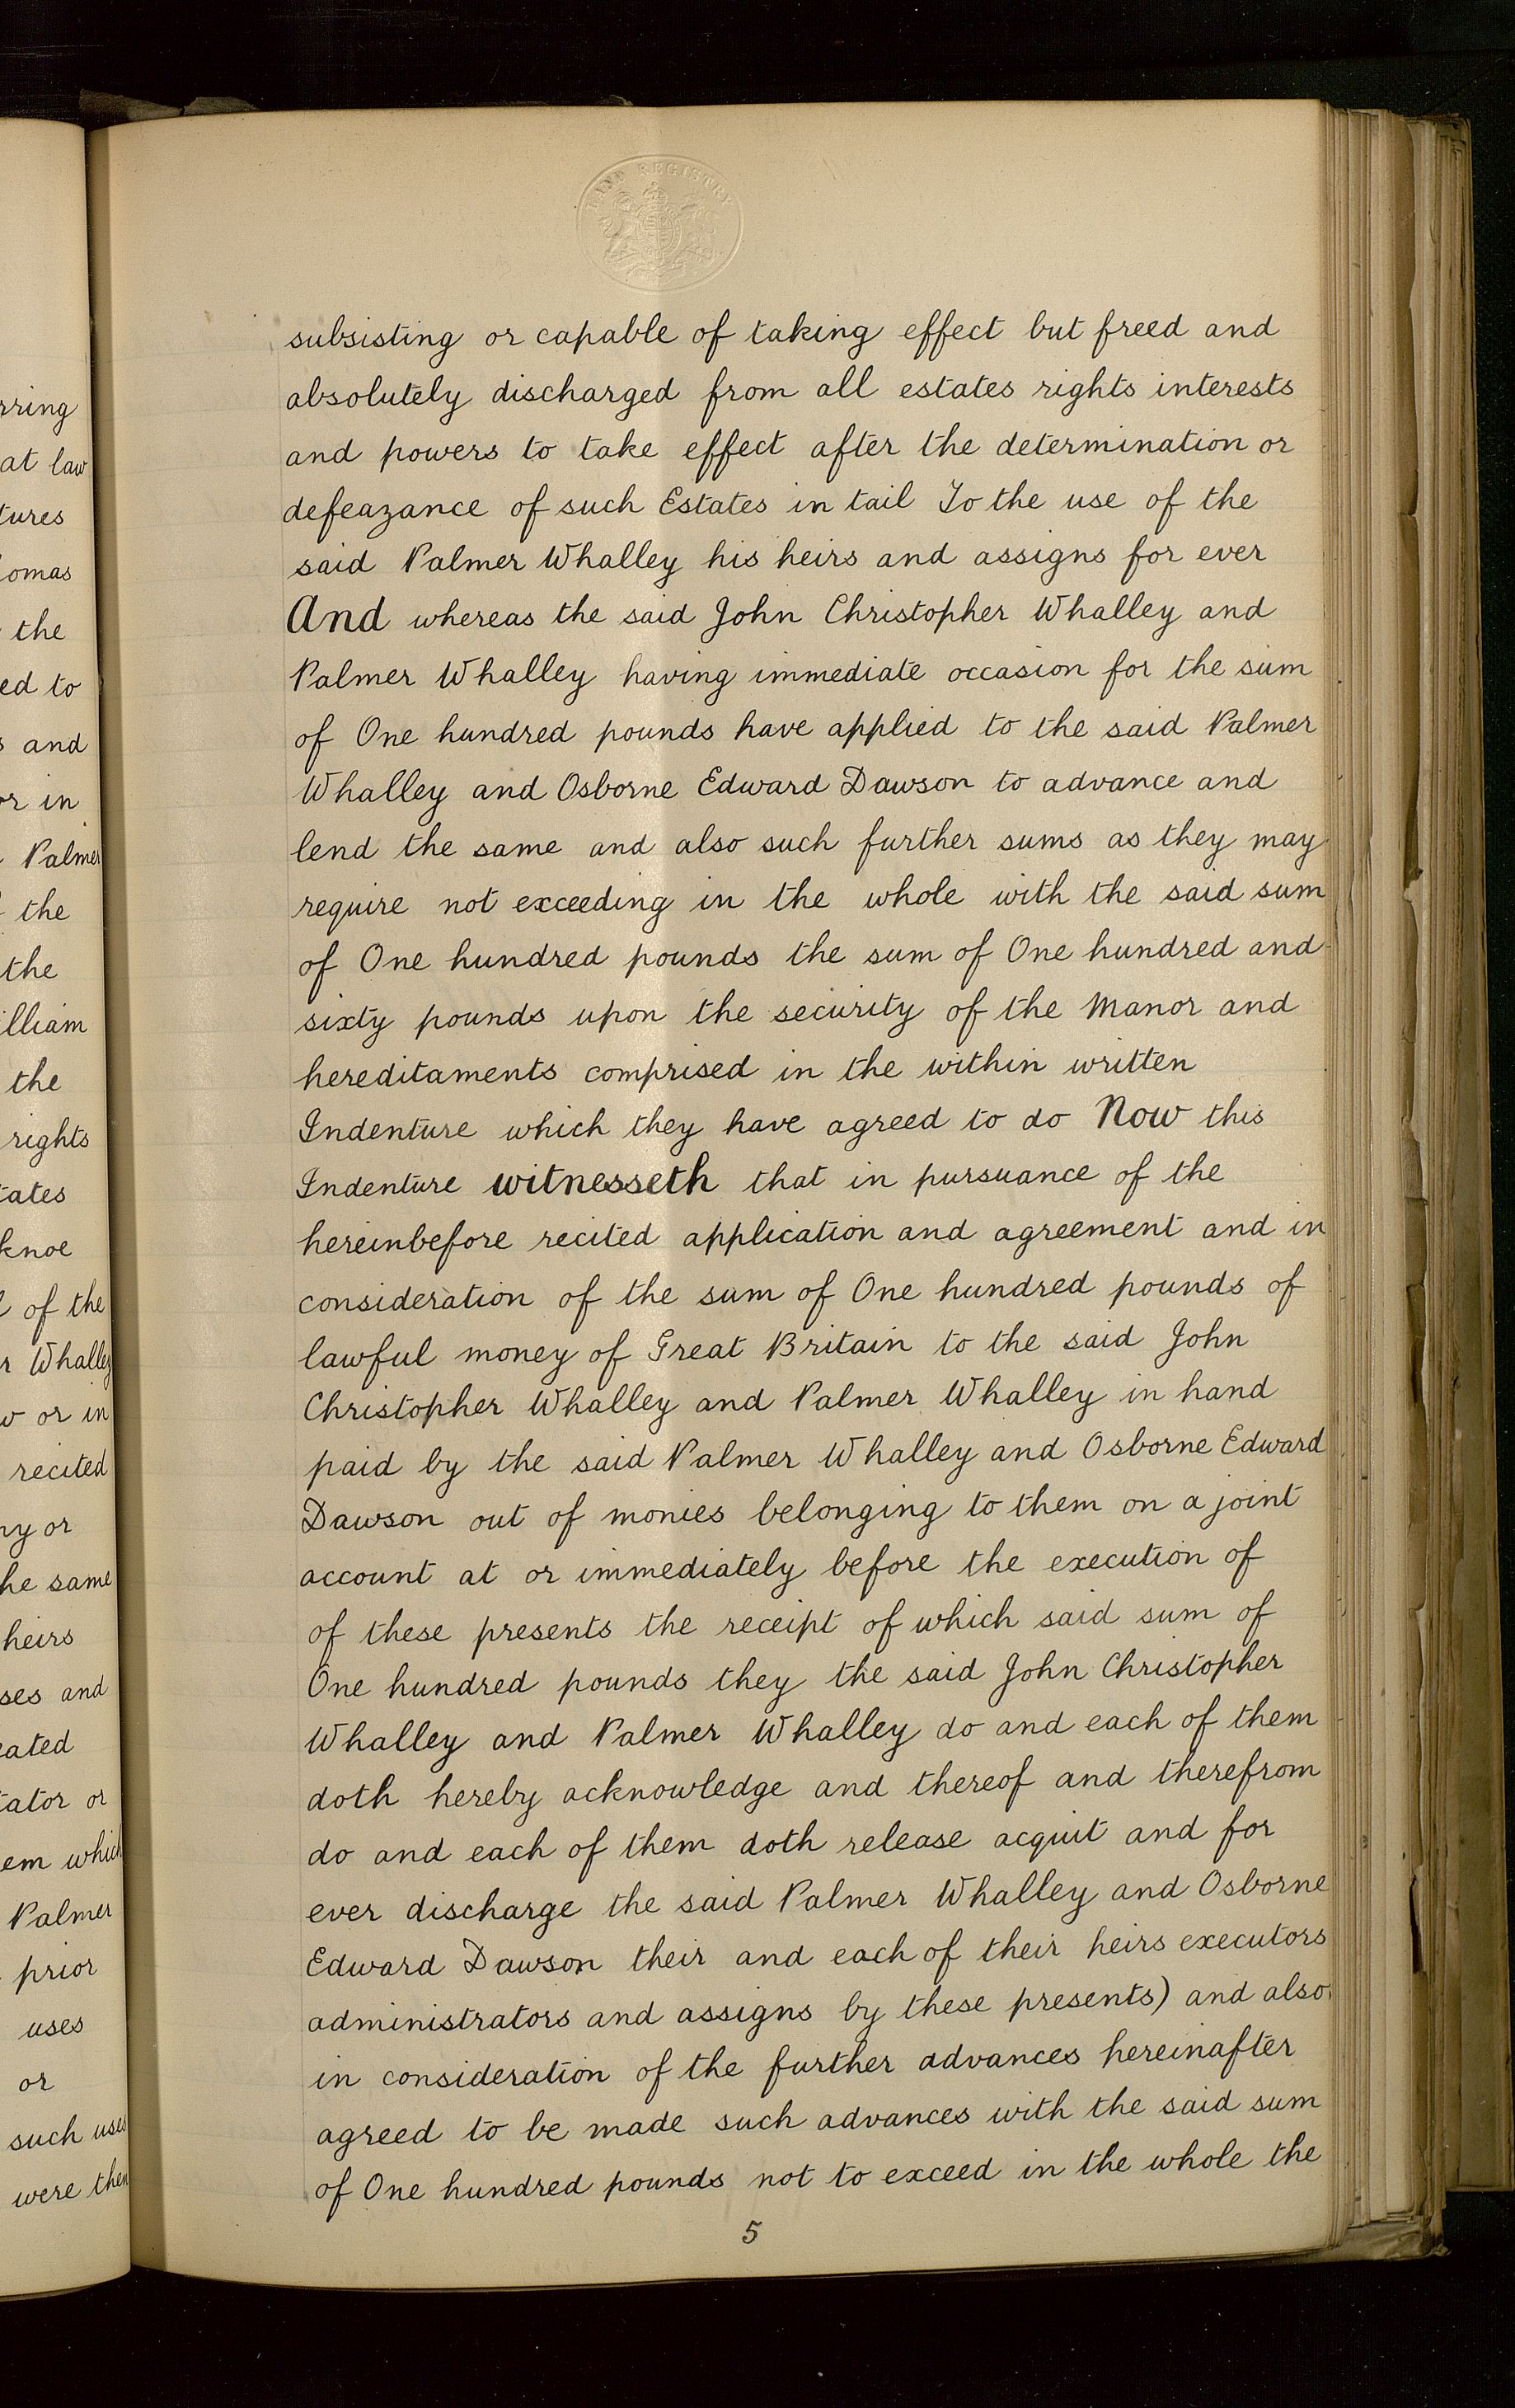 LAND REGISTRY
subsisting or capable of taking effect but freed and
absolutely discharged from all estates rights interests
and powers to take effect after the determination or
defeazance of such Estates in tail To the use of the
said Palmer Whalley his heirs and assigns for ever
And whereas the said John Christopher Whalley and
Palmer Whalley having immediate occasion for the sum
of One hundred pounds have applied to the said Palmer
Whalley and Osborne Edward Dawson to advance and
lend the same and also such further sums as they may
require not exceeding in the whole with the said sum
of One hundred pounds the sum of One hundred and
sixty pounds upon the security of the Manor and
hereditaments comprised in the within written
Indenture which they have agreed to do Now this
Indenture witnesseth that in pursuance of the
hereinbefore recited application and agreement and in
consideration of the sum of One hundred pounds of
lawful money of Great Britain to the said John
Christopher Whalley and Palmer Whalley in hand
paid by the said Palmer Whalley and Osborne Edward
Dawson out of monies belonging to them on a joint
account at or immediately before the execution of
of these presents the receipt of which said sum of
One hundred pounds they the said John Christopher
Whalley and Palmer Whalley do and each of them
doth hereby acknowledge and thereof and therefrom
do and each of them doth release acquit and for
ever discharge the said Palmer Whalley and Osborne
Edward Dawson their and each of their heirs executors
administrators and assigns by these presents) and also
in consideration of the further advances hereinafter
agreed to be made such advances with the said sum
of One hundred pounds not to exceed in the whole the
5
rring
at law
tures
omas
the
ed to
and
or in
Palmer
the
the
illiam
the
rights
tates
knoe
of the
r Whalley
or in
recited
ny or
he same
heirs
ses and
eated
tator or
em which
Palmer
prior
uses
or
such uses
were then